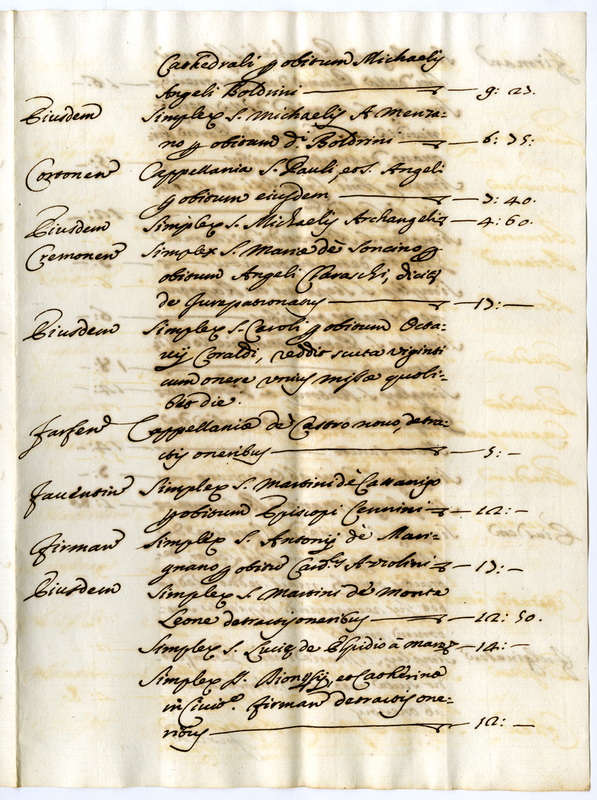 Cathedrali p obitum Michaelis
Angeli Boldrini — 9: 23.
Eiusdem Simplex S. Michaelis A Menza-
no p obitum d. Boldrini — 6: 35:
Cortonen Cappellania S. Pauli, et S. Angeli
p obitum eiusdem — 3: 40.
Eiusdem Simplex S. Michaelis Archangeli — 4: 60.
Cremonen Simplex S. Maria de Soncino p
obitum Angeli Caraschi,
de Jurepatronatus — 13: —
Eiusdem Simplex S. Caroli p obitum Octa-
vij Coraldi, reddit scuta viginti
cum onere unius missæ quoli-
bet die.
Farfen Cappellania de Castro novo, detra-
ctis oneribus — 5: —
Faventin Simplex S. Martini de
p obitum Episcopi Cennini — 12: —
Firman Simplex S. Antonij de Mari-
gnano p obitum Card. Azzolini — 13: —
Eiusdem Simplex S. Martini de Monte
Leone detractis oneribus — 12: 50.
Simplex S. Luciæ de Elpidio à mare — 14: —
Simplex S. Dionysij, et Catherinæ
in Civit. Firman detractis one-
ribus — 12: —